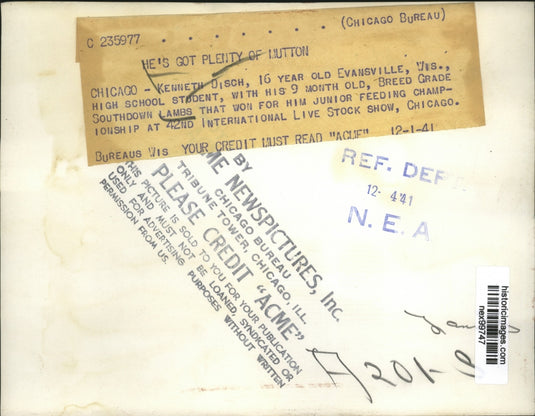 C 235977 - . . . . . . . (CHICAGO BUREAU)
HE'S GOT PLENTY OF MUTTON
CHICAGO - KENNETH DISCH, 16 YEAR OLD EVANSVILLE, WIS.,
HIGH SCHOOL STUDENT, WITH HIS 9 MONTH OLD, BREED GRADE
SOUTHDOWN LAMBS THAT WON FOR HIM JUNIOR FEEDING CHAMP-
IONSHIP AT 42ND INTERNATIONAL LIVE STOCK SHOW, CHICAGO.
BUREAUS WIS YOUR CREDIT MUST READ "ACME" 12-1-41
BY
ME NEWSPICTURES, Inc.
CHICAGO BUREAU
TRIBUNE TOWER, CHICAGO, ILL
PLEASE CREDIT "ACME"
THIS PICTURE IS SOLD TO YOU FOR YOUR PUBLICATION
ONLY AND MUST NOT BE LOANED, SYNDICATED OR
USED FOR ADVERTISING PURPOSES WITHOUT WRITTEN
PERMISSION FROM US.
REF. DEP
12- 4 41
N. E. A
historicimages.com
nex99747
201-